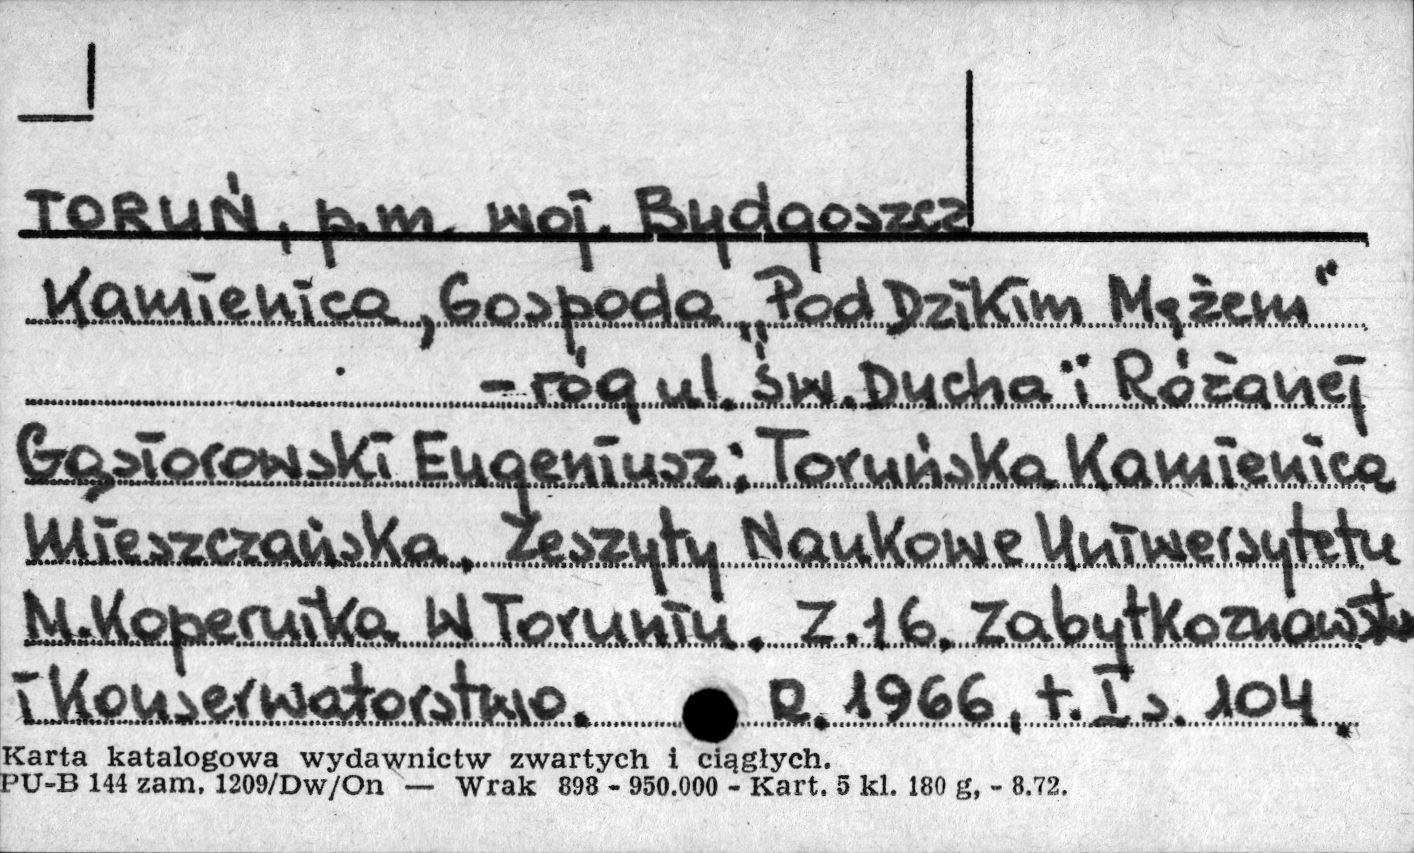 TORUŃ, p.m. woj. Bydgoszcz
Kamienica, Gospoda „Pod Dzikim Mężem"
- róg ul. św. Ducha i Różanej
Gąsiorowski Eugeniusz: Toruńska Kamienica
Mieszczańska. Zeszyty Naukowe Uniwersytetu
M. Kopernika W Toruniu. Z.16. Zabytkoznawstwo
i Konserwatorstwo. R. 1966, t. I s. 104.
Karta katalogowa wydawnictw zwartych i ciągłych.
PU-B 144 zam. 1209/Dw/On — Wrak 898 - 950.000 - Kart. 5 kl. 180 g, - 8.72.